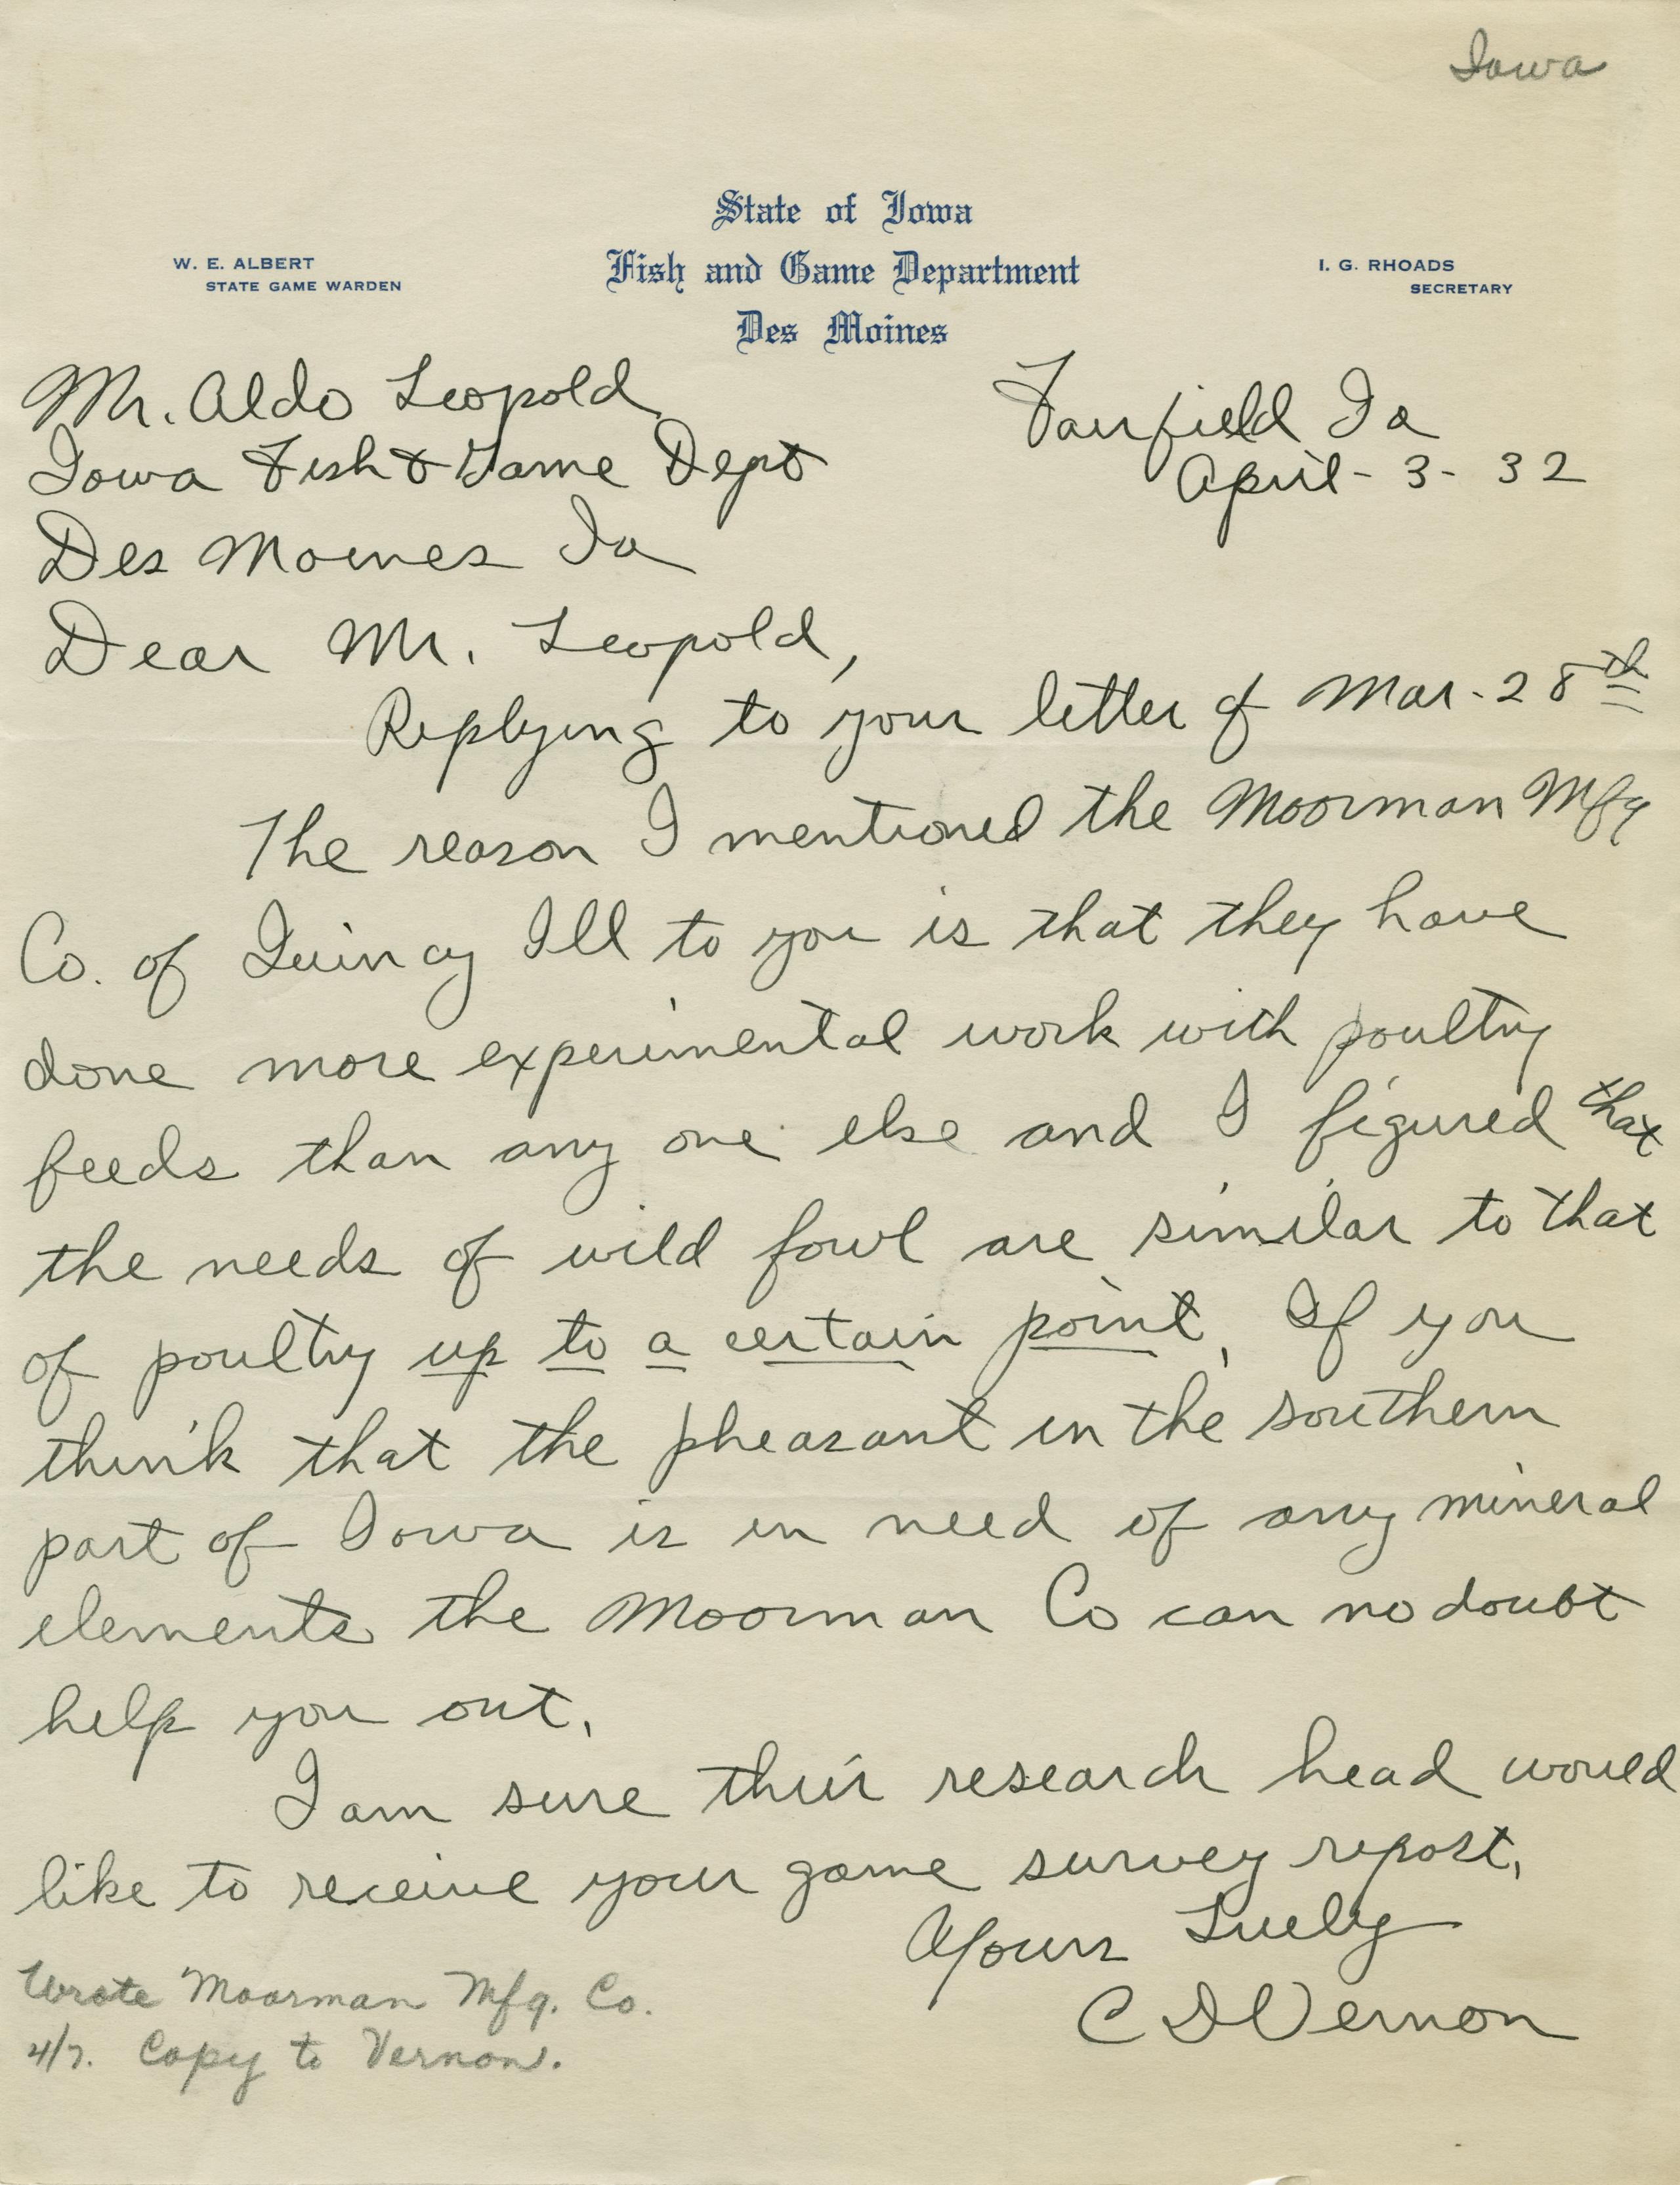 Iowa
State of Iowa
Fish and Game Department
Des Moines
W. E. ALBERT
STATE GAME WARDEN
I. G. RHOADS
SECRETARY
Mr. Aldo Leopold
Iowa Fish & Game Dept
Des Moines Ia
Fairfield Ia
April - 3 - 32
Dear Mr. Leopold,
Replying to your letter of Mar. 28th
The reason I mentioned the Moorman Mfg
Co. of Quincy Ill to you is that they have
done more experimental work with poultry
feeds than any one else and I figured that
the needs of wild fowl are similar to that
of poultry up to a certain point. If you
think that the pheasant in the southern
part of Iowa is in need of any mineral
elements the Moorman Co can no doubt
help you out.
I am sure their research head would
like to receive your game survey report.
Yours Truly
C D Vernon
Wrote Moorman Mfg. Co.
4/7. Copy to Vernon.